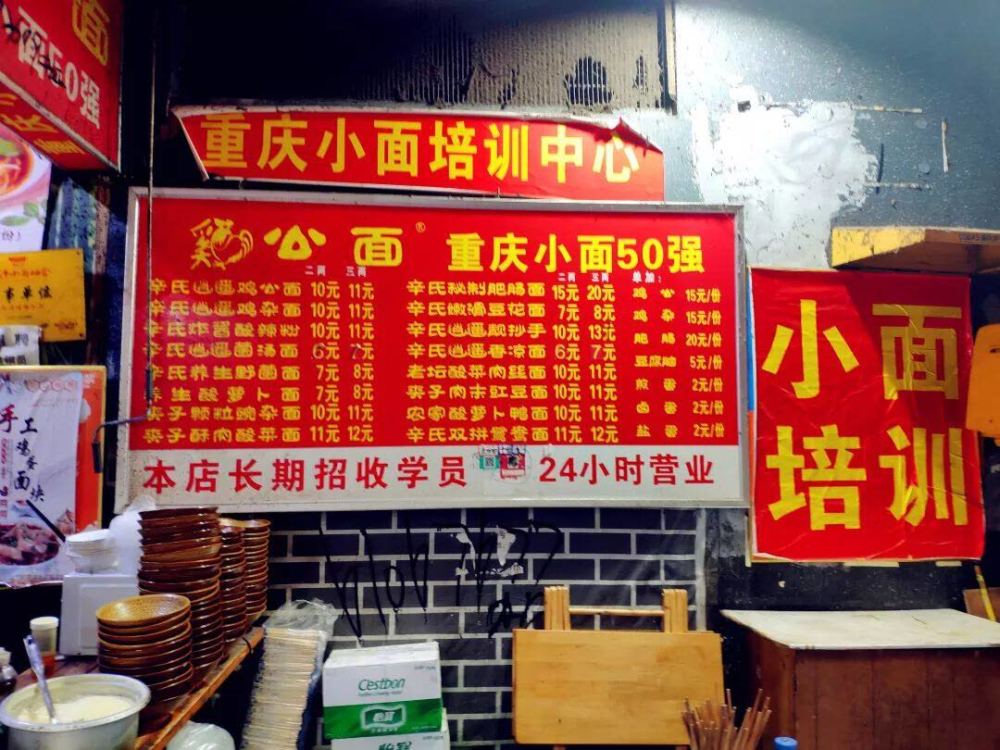 面
面50强
重庆小面培训中心
鸡公面® 重庆小面50强
二两 三两
二两 三两 单加:
辛氏逍遥鸡公面 10元 11元
辛氏逍遥鸡杂面 10元 11元
辛氏炸酱酸辣粉 10元 11元
辛氏逍遥菌汤面 6元 7元
辛氏养生野菌面 7元 8元
养生酸萝卜面 7元 8元
夹子颗粒碗杂面 10元 11元
夹子酥肉酸菜面 11元 12元
辛氏秘制肥肠面 15元 20元
辛氏嫩滑豆花面 7元 8元
辛氏逍遥靓抄手 10元 13元
辛氏逍遥香凉面 6元 7元
老坛酸菜肉丝面 10元 11元
夹子肉末豇豆面 10元 11元
农家酸萝卜鸭面 10元 11元
辛氏双拼鸳鸯面 11元 12元
鸡公 15元/份
鸡杂 15元/份
肥肠 20元/份
豆腐脑 5元/份
煎蛋 2元/份
卤蛋 2元/份
盐蛋 2元/份
本店长期招收学员 24小时营业
小面
培训
事单位
手工
鸡蛋
面块
Cestbon
怡宝